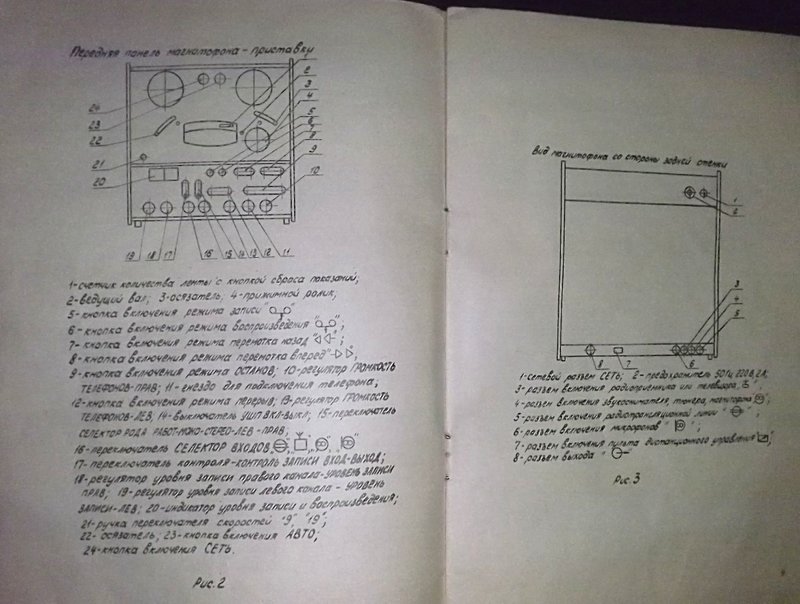 Передняя панель магнитофона-приставки
1
2
3
4
5
6
7
8
9
10
24
23
22
21
20
19 18 17 16 15 14 13 12 11
1-счетчик количества ленты с кнопкой сброса показаний;
2-ведущий вал; 3-осязатель; 4-прижимной ролик;
5-кнопка включения режима записи " ";
6-кнопка включения режима воспроизведения " ";
7-кнопка включения режима перемотка назад "◁◁";
8-кнопка включения режима перемотка вперед "▷▷";
9-кнопка включения режима ОСТАНОВ; 10-регулятор ГРОМКОСТЬ
ТЕЛЕФОНОВ-ПРАВ; 11-гнездо для подключения телефона;
12-кнопка включения режима перерыв; 13-регулятор ГРОМКОСТЬ
ТЕЛЕФОНОВ-ЛЕВ; 14-выключатель УШП ВКЛ-ВЫКЛ; 15-переключатель
СЕЛЕКТОР РОДА РАБОТ-МОНО-СТЕРЕО-ЛЕВ-ПРАВ;
16-переключатель СЕЛЕКТОР ВХОДОВ
17-переключатель контроля-КОНТРОЛЬ ЗАПИСИ ВХОД-ВЫХОД;
18-регулятор уровня записи правого канала-УРОВЕНЬ ЗАПИСИ
ПРАВ; 19-регулятор уровня записи левого канала-УРОВЕНЬ
ЗАПИСИ-ЛЕВ; 20-индикатор уровня записи и воспроизведения;
21-ручка переключателя скоростей "9", "19";
22-осязатель; 23-кнопка включения АВТО;
24-кнопка включения СЕТЬ.
Рис. 2
Вид магнитофона со стороны задней стенки
1
2
3
4
5
8 7 6
1-сетевой разъем СЕТЬ; 2-предохранитель 50Гц 220В, 2А;
3-разъем включения радиоприемника или телевизора,
4-разъем включения звукоснимателя, тюнера, магнитофона
5-разъем включения радиотрансляционной линии " ";
6-разъем включения микрофонов " ";
7-разъем включения пульта дистанционного управления
8-разъем выхода "
Рис. 3